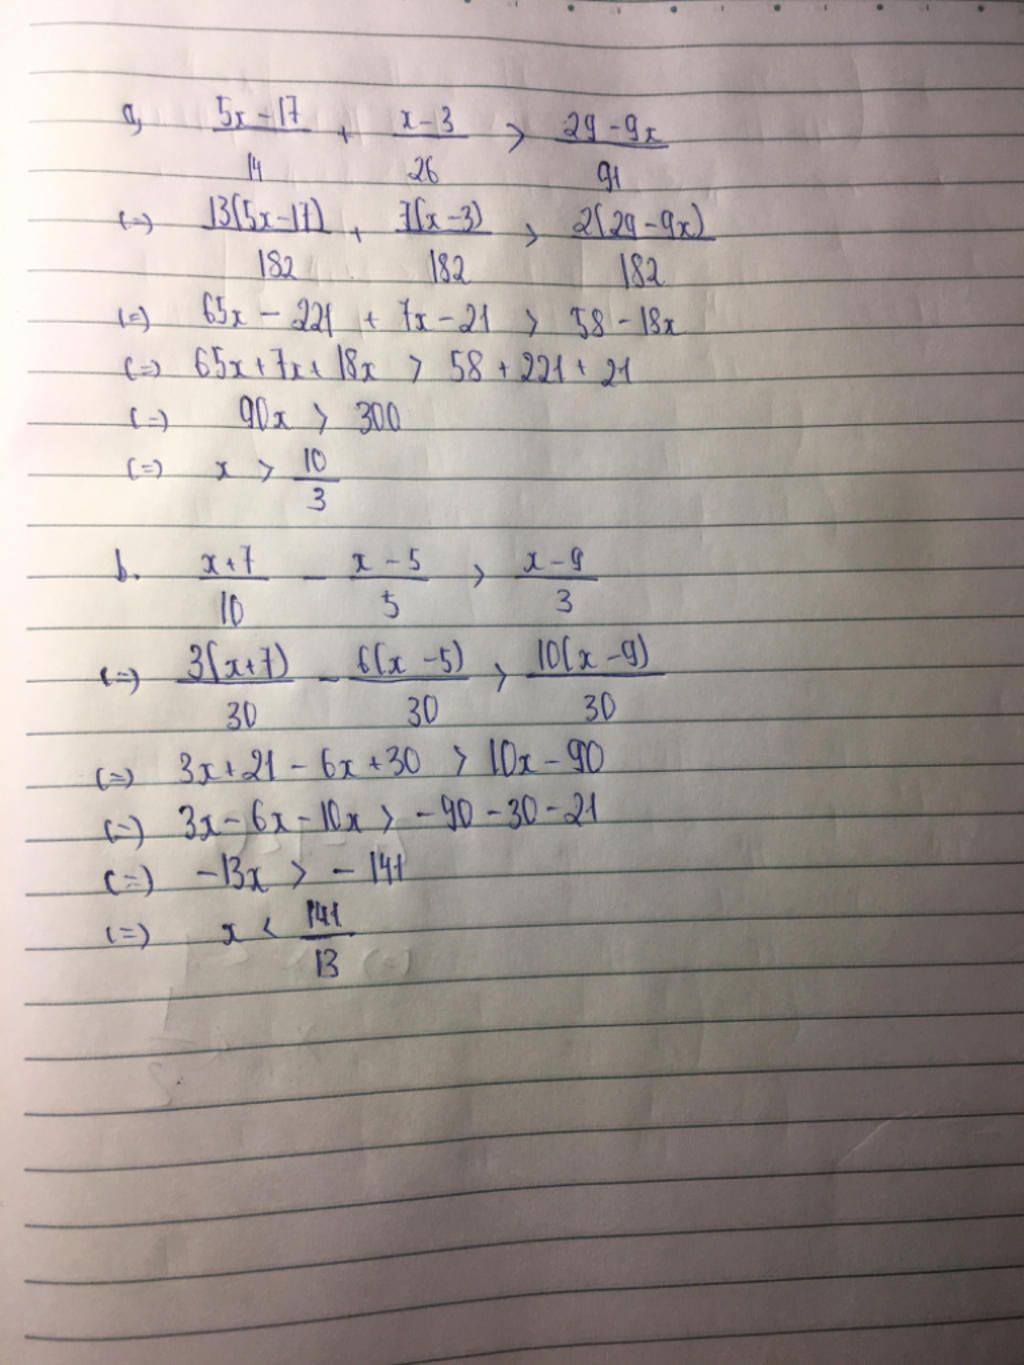 a, (5x-17)/14 + (x-3)/26 > (29-9x)/91
(=) 13(5x-17)/182 + 7(x-3)/182 > 2(29-9x)/182
(=) 65x - 221 + 7x - 21 > 58 - 18x
(=) 65x + 7x + 18x > 58 + 221 + 21
(=) 90x > 300
(=) x > 10/3
b. (x+7)/10 - (x-5)/5 > (x-9)/3
(=) 3(x+7)/30 - 6(x-5)/30 > 10(x-9)/30
(=) 3x + 21 - 6x + 30 > 10x - 90
(=) 3x - 6x - 10x > -90 - 30 - 21
(=) -13x > -141
(=) x < 141/13